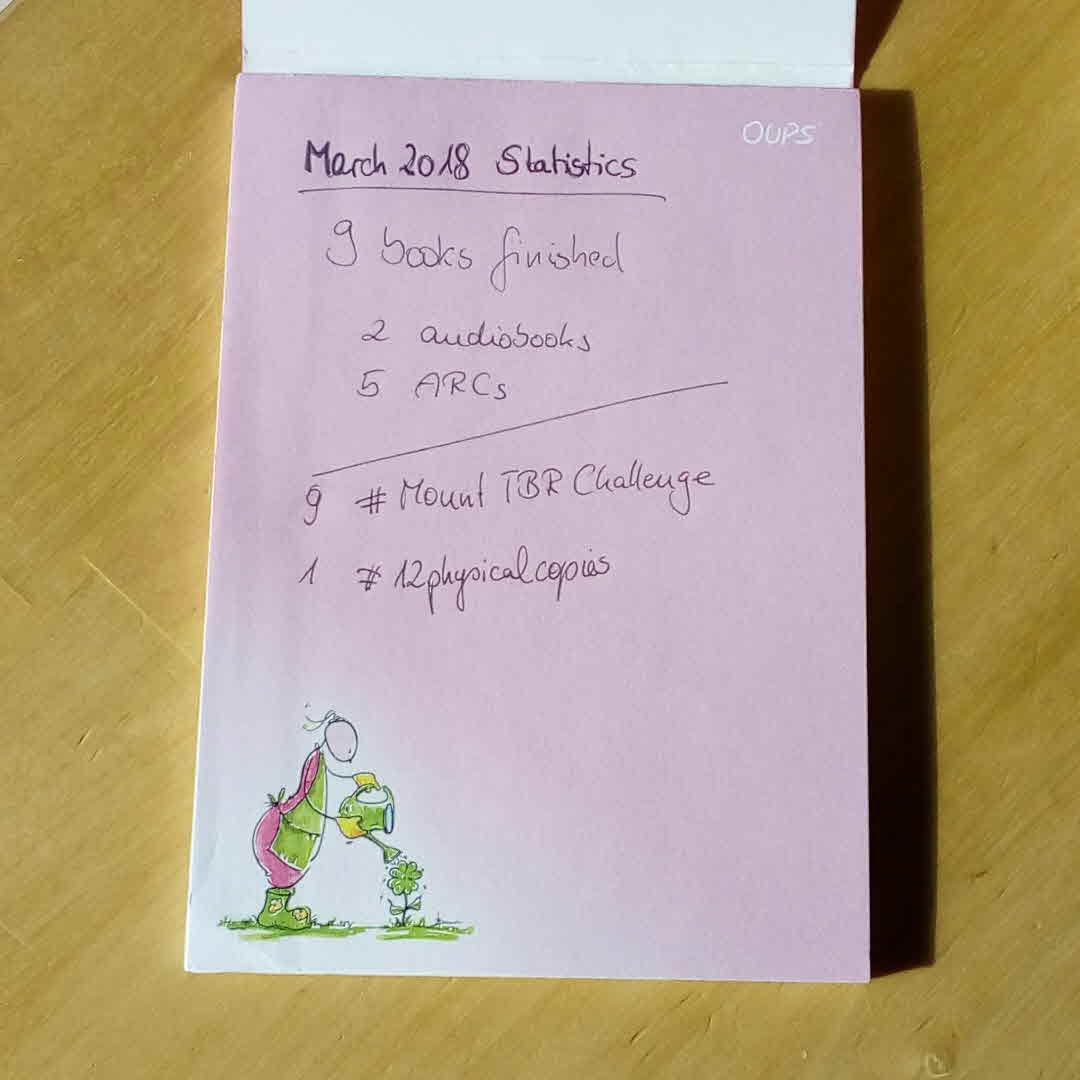 OUPS
March 2018 Statistics
9 books finished
2 audiobooks
5 ARCs
9 # Mount TBR Challenge
1 # 12physicalcopies